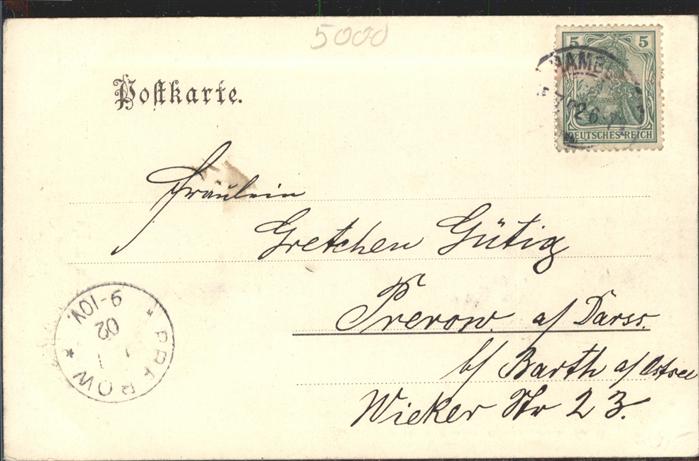 5000
5 5
DEUTSCHES REICH
Postkarte.
Fräulein
Gretchen Gütig
Prerow a/ Darss.
b/ Barth a/ Ostsee
Wieker Str 23.
PREROW
02
9-10V.